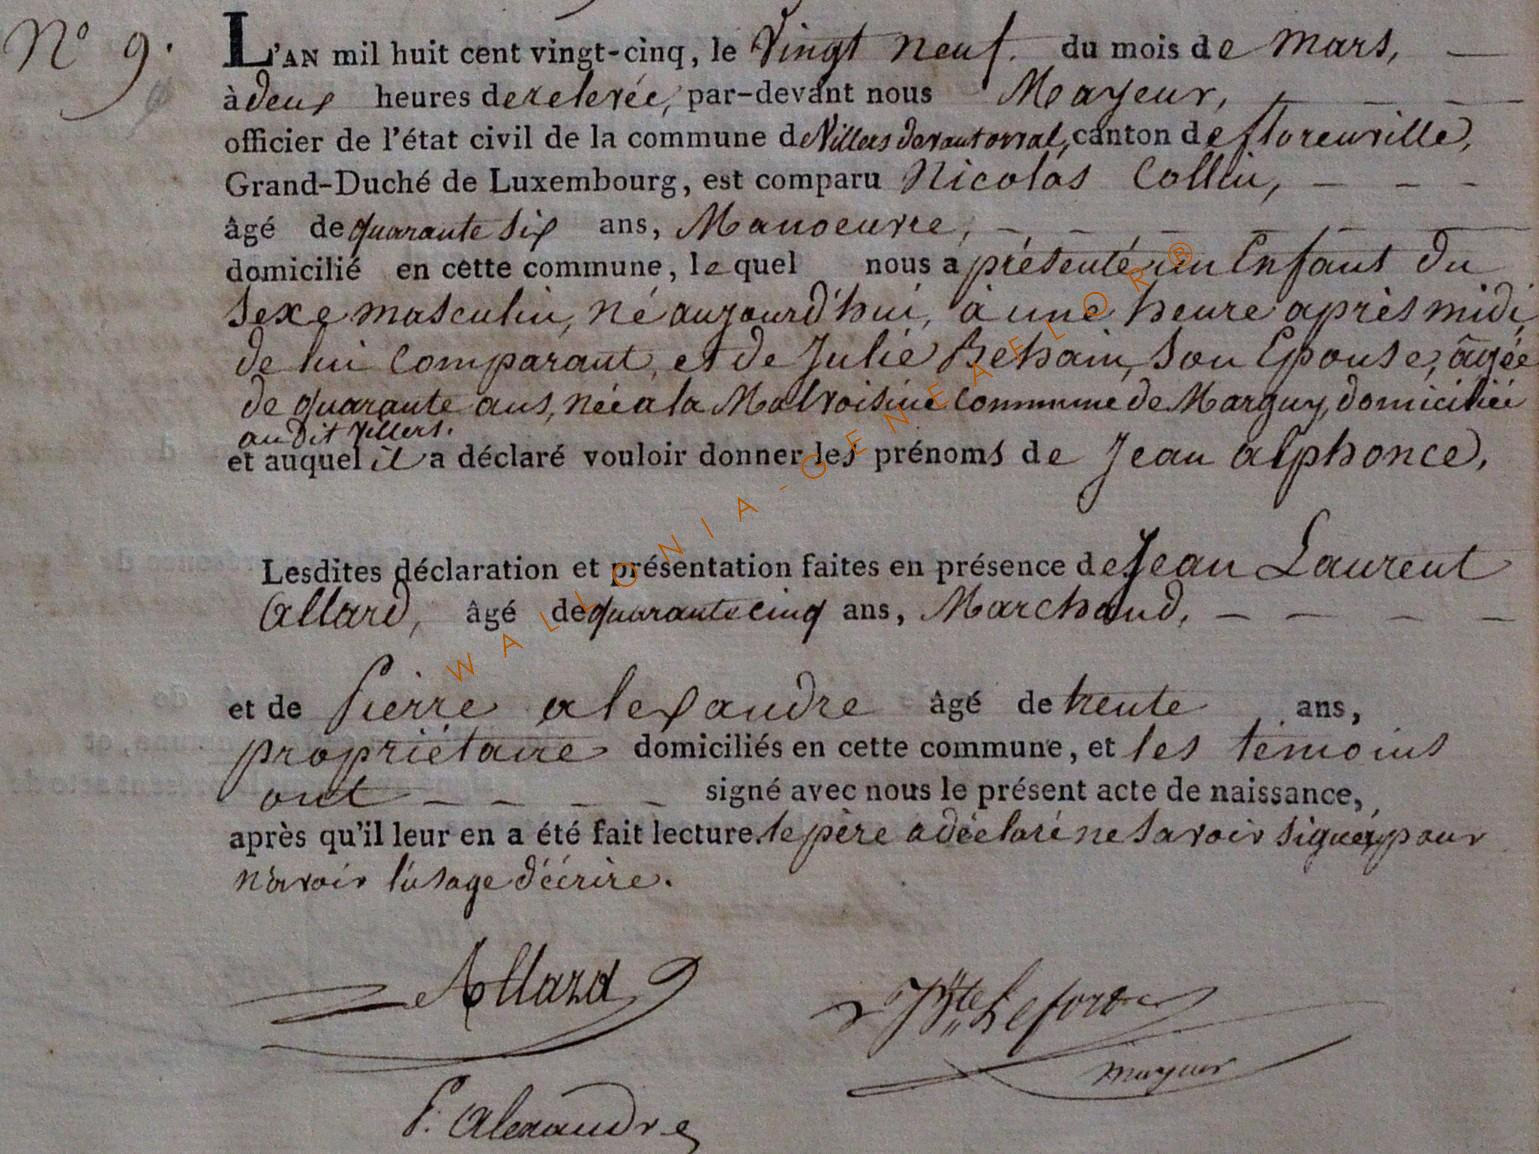 N° 9.
L'AN mil huit cent vingt-cinq, le Vingt neuf. du mois de mars,
à deux heures de relevée, par-devant nous Mayeur,
officier de l'état civil de la commune de Villers devant orval, canton de florenville,
Grand-Duché de Luxembourg, est comparu Nicolas Collin,
âgé de quarante six ans, Manoeuvre,
domicilié en cette commune, lequel nous a présenté un Enfant du
sexe masculin, né aujourd'hui, à une heure après midi,
de lui Comparant, et de Julie Behain, son Epouse, âgée
de quarante ans, née a la Malvoisine Commune de Marguy, domiciliée
au Dit Villers.
et auquel il a déclaré vouloir donner les prénoms de Jean alphonce,
Lesdites déclaration et présentation faites en présence de Jean Laurent
Allard, âgé de quarante cinq ans, Marchand,
et de Pierre alexandre âgé de trente ans,
propriétaire domiciliés en cette commune, et les témoins
ont signé avec nous le présent acte de naissance,
après qu'il leur en a été fait lecture. le père a déclaré ne savoir signer, pour
n'avoir l'usage d'écrire.
Allard
Lefort
mayeur
P. Alexandre
WALLONIA-GENEAFLOR®